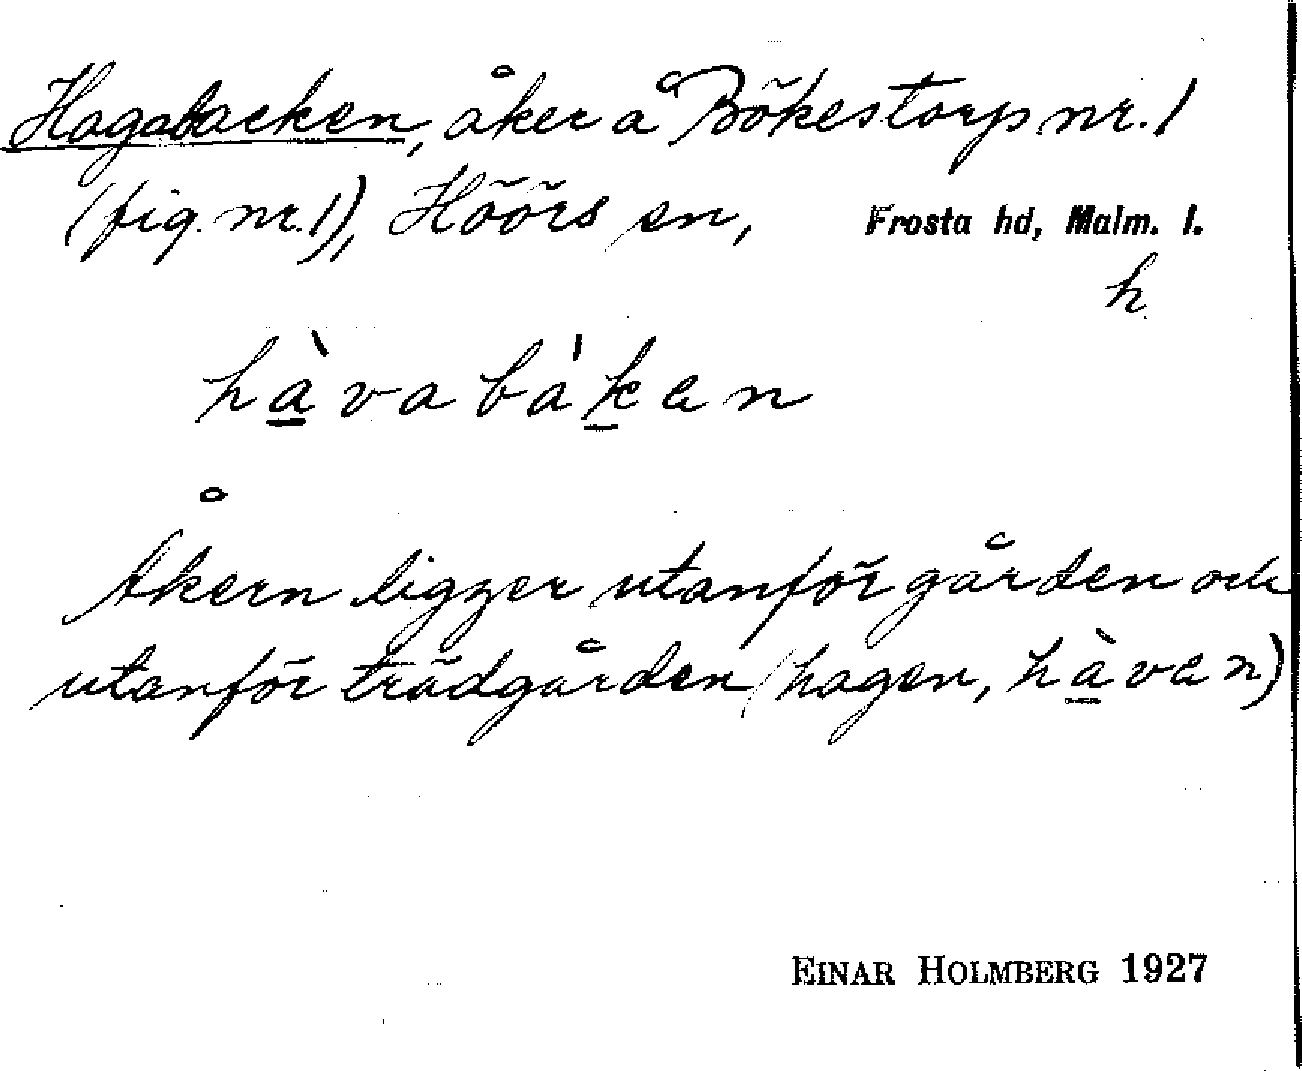 Hagabacken, åker å Bökestorp nr. 1
(fig. nr. 1), Höörs sn, Frosta hd, Malm. l.
h
hàvabákən
Åkern ligger utanför gården och
utanför trädgården (hagen, hàvən)
EINAR HOLMBERG 1927